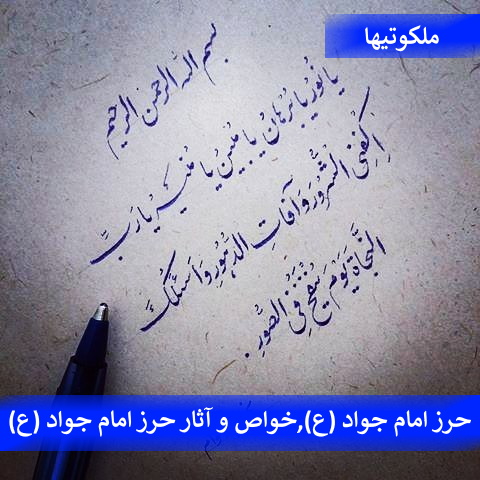 ملکوتیها
بسم الله الرحمن الرحیم
یا نُورُ یا بُرهانُ یا مُبینُ یا مُنیرُ یا رَبِّ
اِکفِنِی الشُّرُورَ وَ آفاتِ الدُّهُورِ وَ اَسئَلُکَ
النَّجاةَ یَومَ یُنفَخُ فِی الصُّورِ.
حرز امام جواد (ع),خواص و آثار حرز امام جواد (ع)